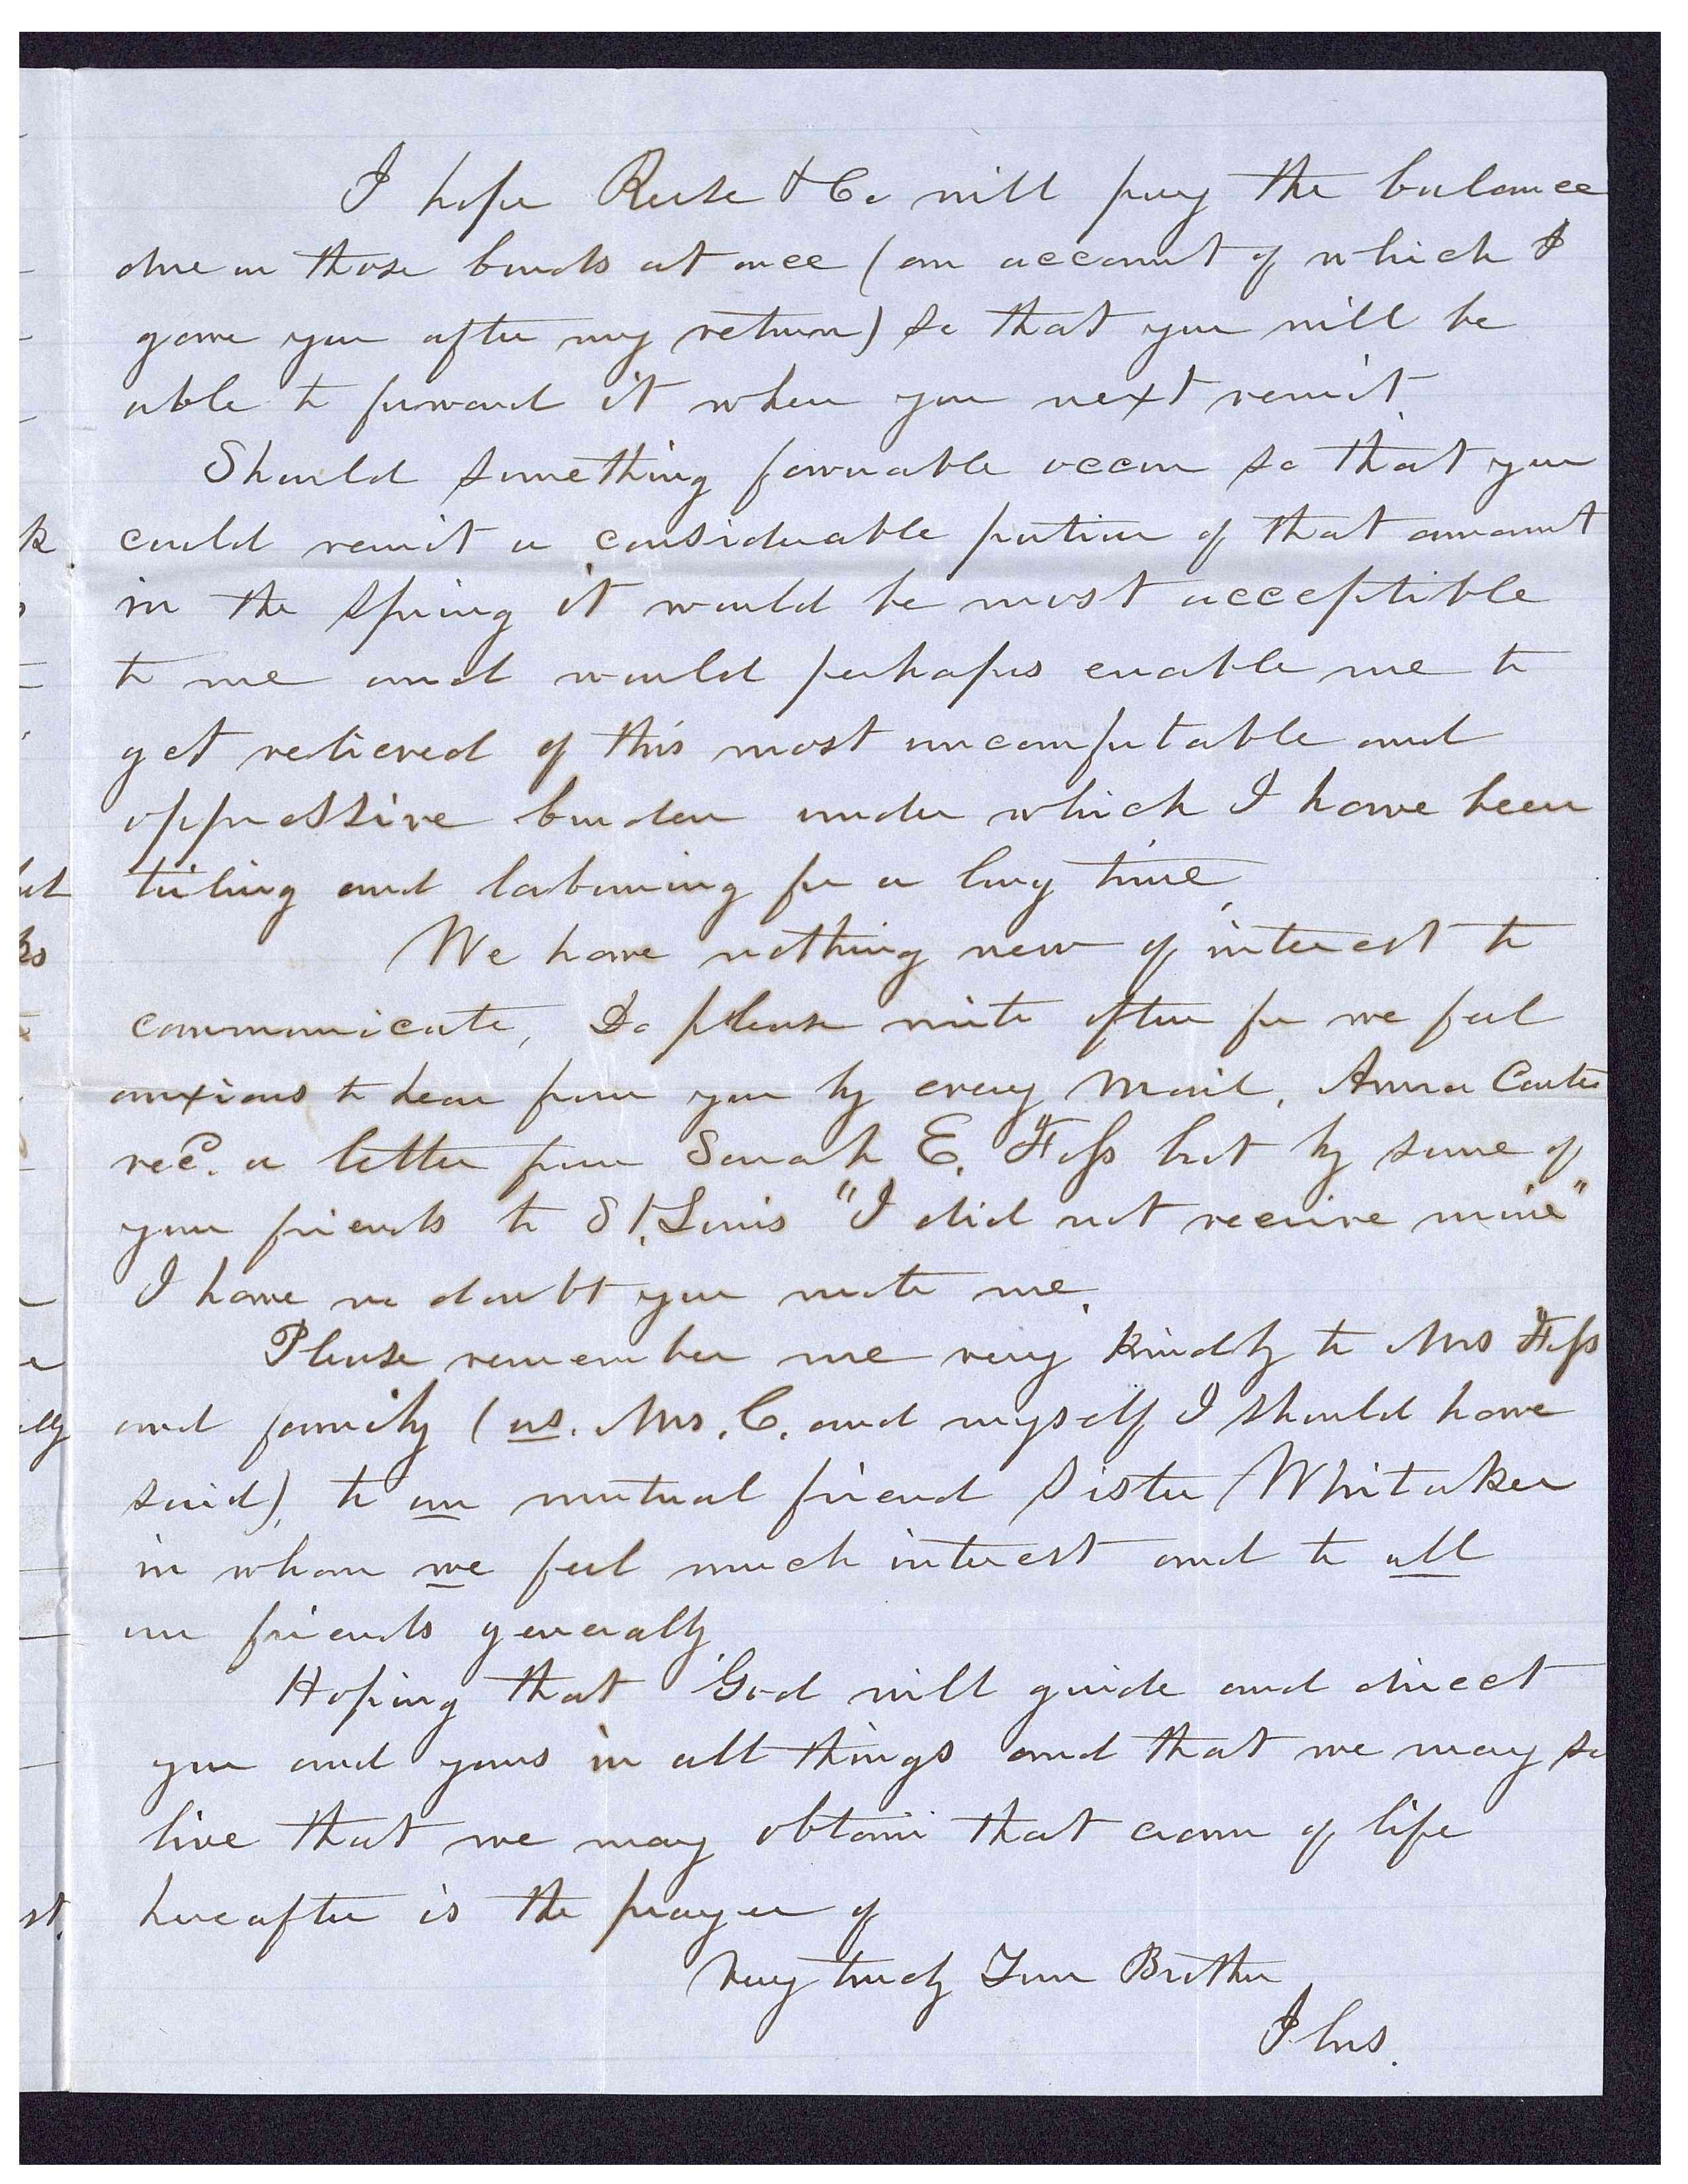 I hope Reese & Co will pay the balance
due on those bonds at once (an account of which I
gave you after my return) so that you will be
able to forward it when you next remit.
Should something favorable occur so that you
could remit a considerable portion of that amount
in the Spring it would be most acceptible
to me and would perhaps enable me to
get relieved of this most uncomfortable and
oppressive burden under which I have been
toiling and laboring for a long time,
We have nothing new of interest to
communicate, Do please write often for we feel
anxious to hear from you by every Mail, Anna Carter
recd. a letter from Sarah E. but by some of
your friends to St. Louis "I did not receive mine"
I have no doubt you wrote me.
Please remember me very Kindly to Mrs
and family (us. Mrs. C. and myself I should have
said), to our mutual friend Sister Whitaker
in whom we feel much interest and to all
our friends generally
Hoping that God will guide and direct
you and yours in all things and that we may so
live that we may obtain that crown of life
hereafter is the prayer of
Very truly Your Brother